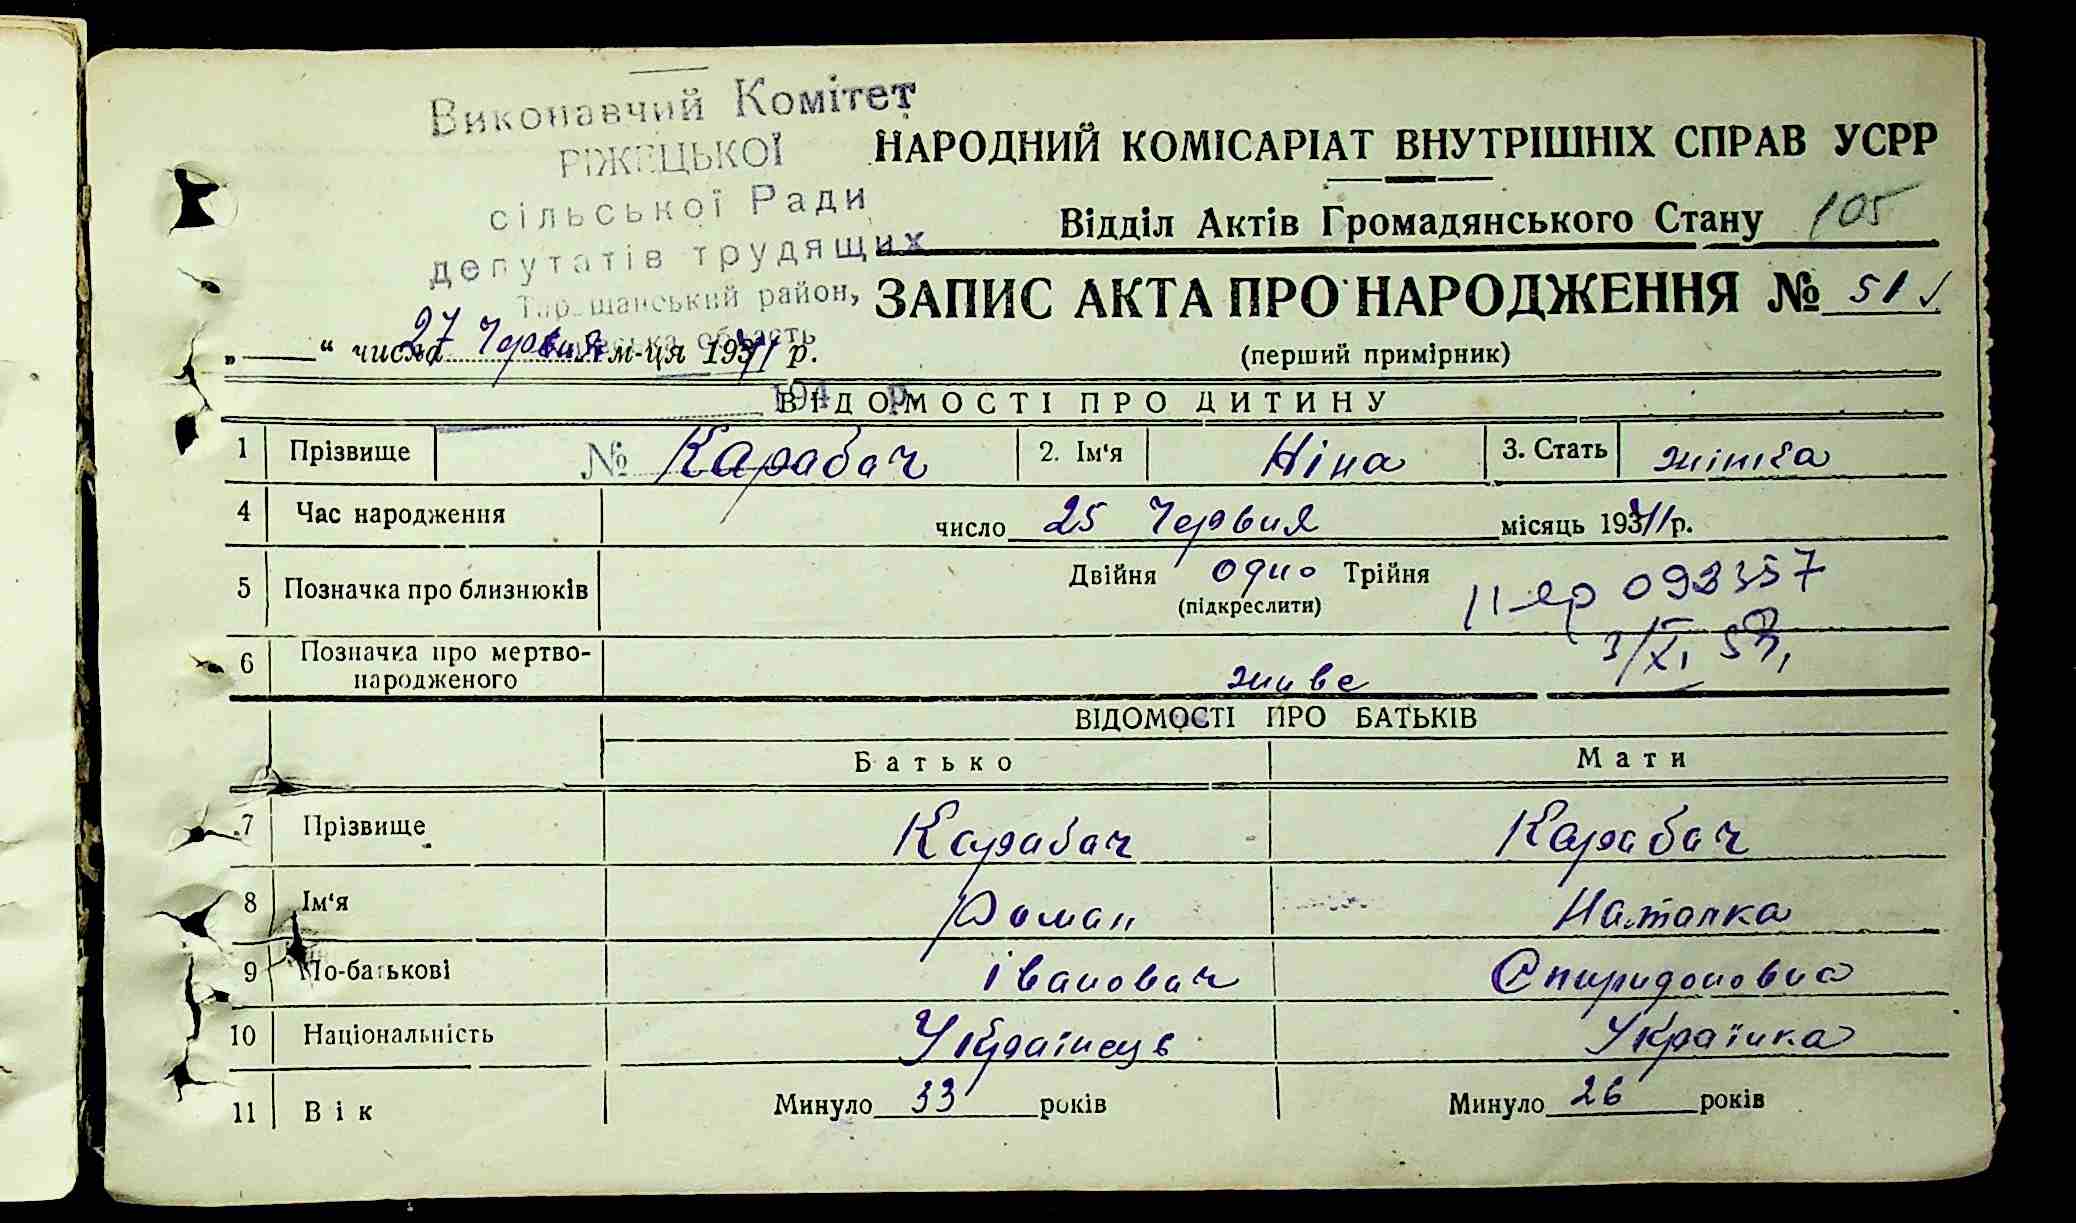 Виконавчий Комітет
РІЖЕЦЬКОЇ
сільської Ради
депутатів трудящих
район,
область
194 р.
№
НАРОДНИЙ КОМІСАРІАТ ВНУТРІШНІХ СПРАВ УСРР
Відділ Актів Громадянського Стану 105
ЗАПИС АКТА ПРО НАРОДЖЕННЯ № 51
„ “ числа 27 Червня м-ця 1941 р.
(перший примірник)
ВІДОМОСТІ ПРО ДИТИНУ
1 Прізвище Карабач 2. Ім'я Ніна 3. Стать жіноча
4 Час народження число 25 Червня місяць 1941 р.
5 Позначка про близнюків Двійня одно Трійня
(підкреслити)
093357
3/XI
6 Позначка про мертво-
народженого живе
ВІДОМОСТІ ПРО БАТЬКІВ
Батько Мати
7 Прізвище Карабач Карабач
8 Ім'я Роман Наталка
9 По-батькові Іванович Спиридоновна
10 Національність Українець Українка
11 Вік Минуло 33 років Минуло 26 років